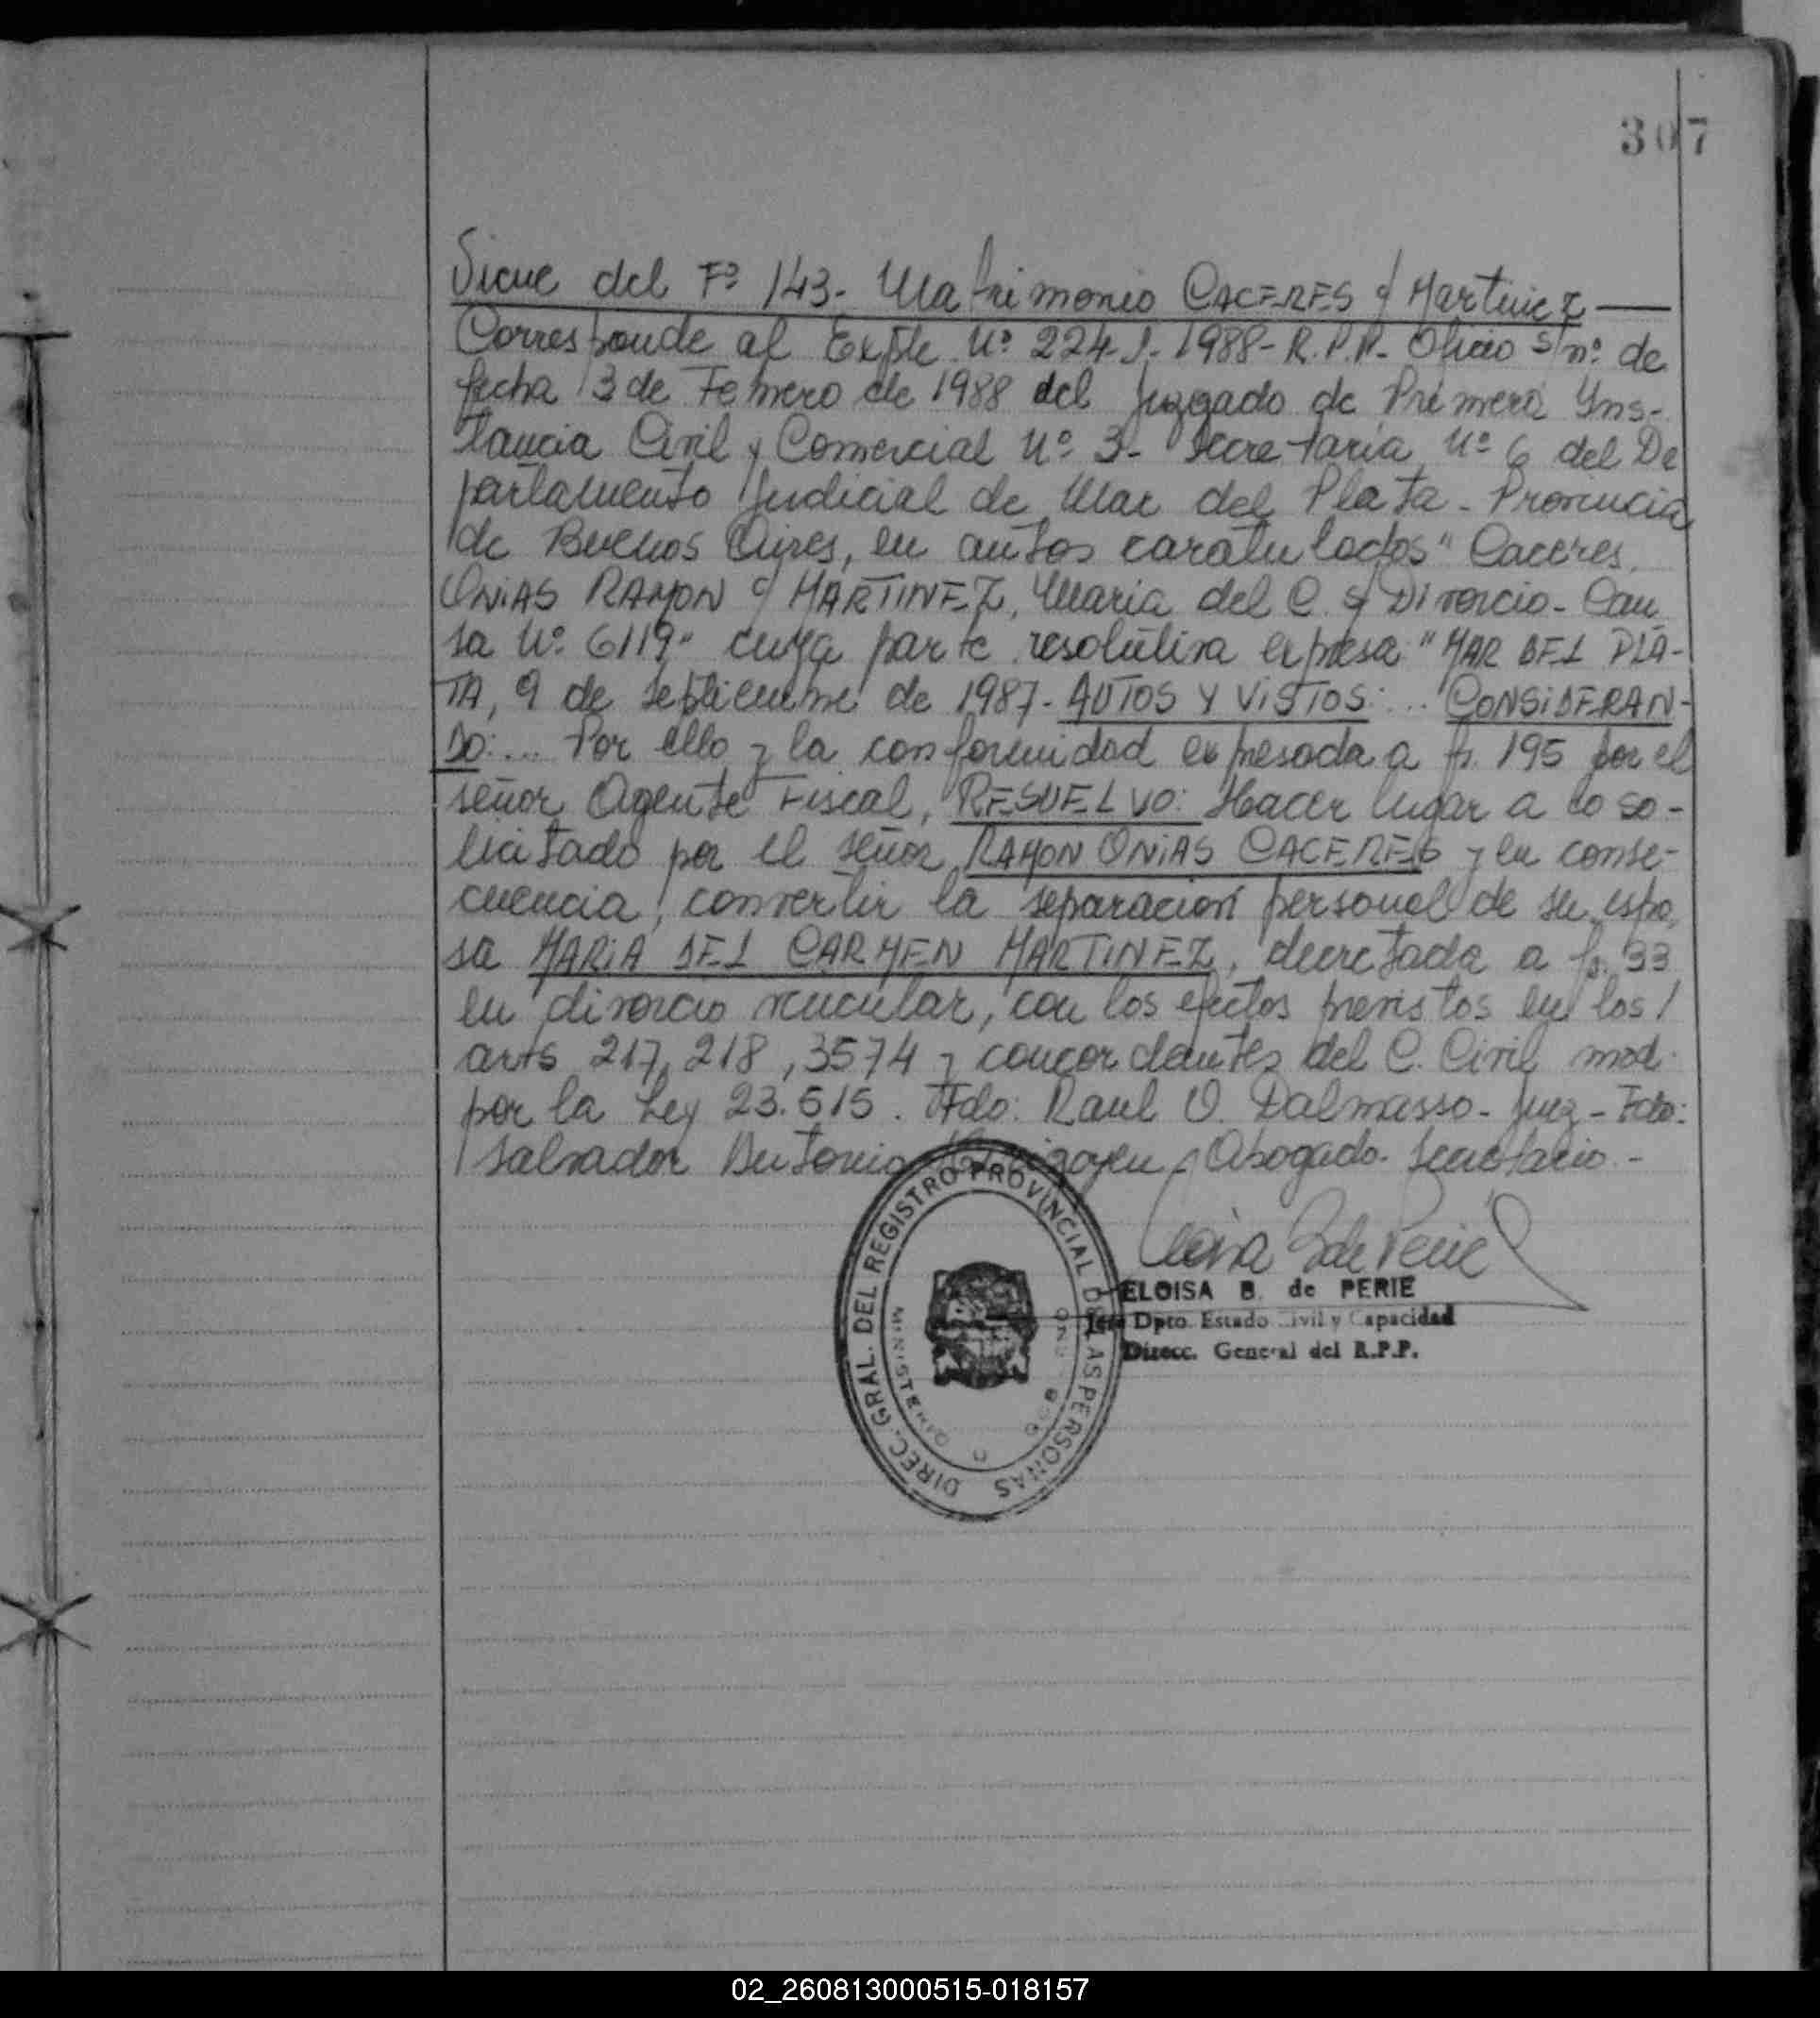 307
Sigue del Fº 143- Matrimonio CACERES c/ Martinez
Corresponde al Expte Nº 224-J-1988-R.P.P. Oficio s/nº de
fecha 3 de Febrero de 1988 del Juzgado de Primera Yns-
tancia Civil y Comercial Nº 3- Secretaría Nº 6 del De
partamento Judicial de Mar del Plata - Provincia
de Buenos Aires, en autos caratulados "Caceres
ONIAS RAMON c/ MARTINEZ, Maria del C. s/ Divorcio- Cau
sa Nº 6119" cuya parte resolutiva expresa "MAR DEL PLA-
TA, 9 de septiembre de 1987- AUTOS Y VISTOS: ... CONSIDERAN-
DO: ... Por ello y la conformidad expresada a fs. 195 por el
señor Agente Fiscal, RESUELVO: Hacer lugar a lo so-
licitado por el señor RAMON ONIAS CACERES y en conse-
cuencia, convertir la separación personal de su espo
sa MARIA DEL CARMEN MARTINEZ, decretada a fs. 33
en divorcio vincular, con los efectos previstos en los /
arts 217, 218, 3574 y concordantes del C. Civil mod.
por la Ley 23.515. Fdo: Raul O. Dalmasso- Juez- Fdo:
Salvador Antonio - Abogado- Secretario.-
DIREC. GRAL. DEL REGISTRO PROVINCIAL DE LAS PERSONAS
ELOISA B. de PERIE
Jefe Dpto. Estado Civil y Capacidad
Direcc. General del R.P.P.
02_260813000515-018157